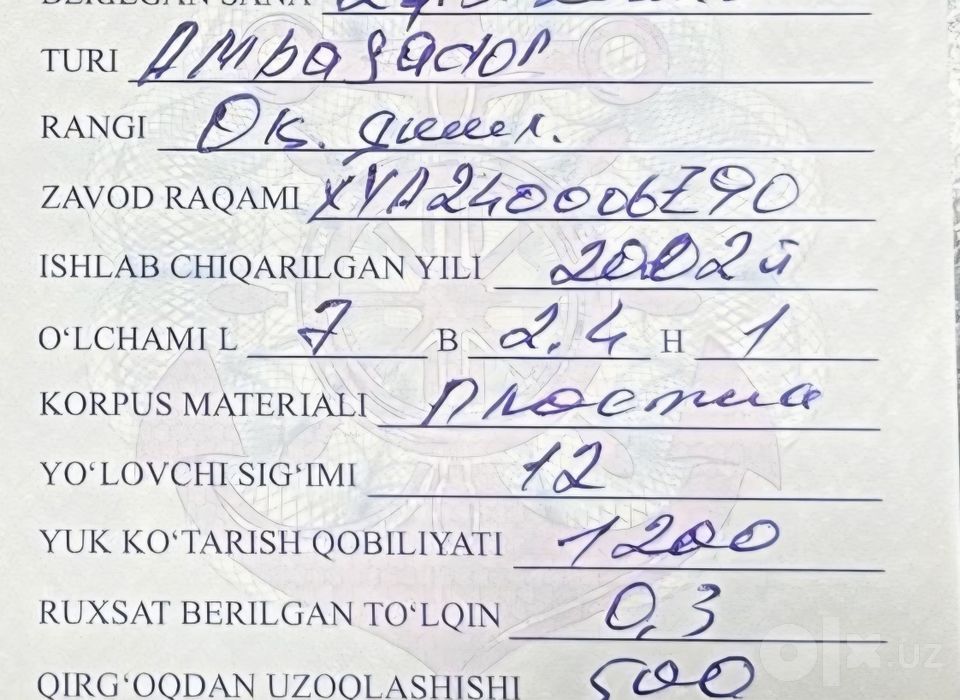 BERILGAN SANA
TURI Ambasador
RANGI Ок.
ZAVOD RAQAMI XYA240006Z90
ISHLAB CHIQARILGAN YILI 2002й
O‘LCHAMI L 7 B 2,4 H 1
KORPUS MATERIALI пластик
YO‘LOVCHI SIG‘IMI 12
YUK KO‘TARISH QOBILIYATI 1200
RUXSAT BERILGAN TO‘LQIN 0,3
QIRG‘OQDAN UZOQLASHISHI 500
olx.uz